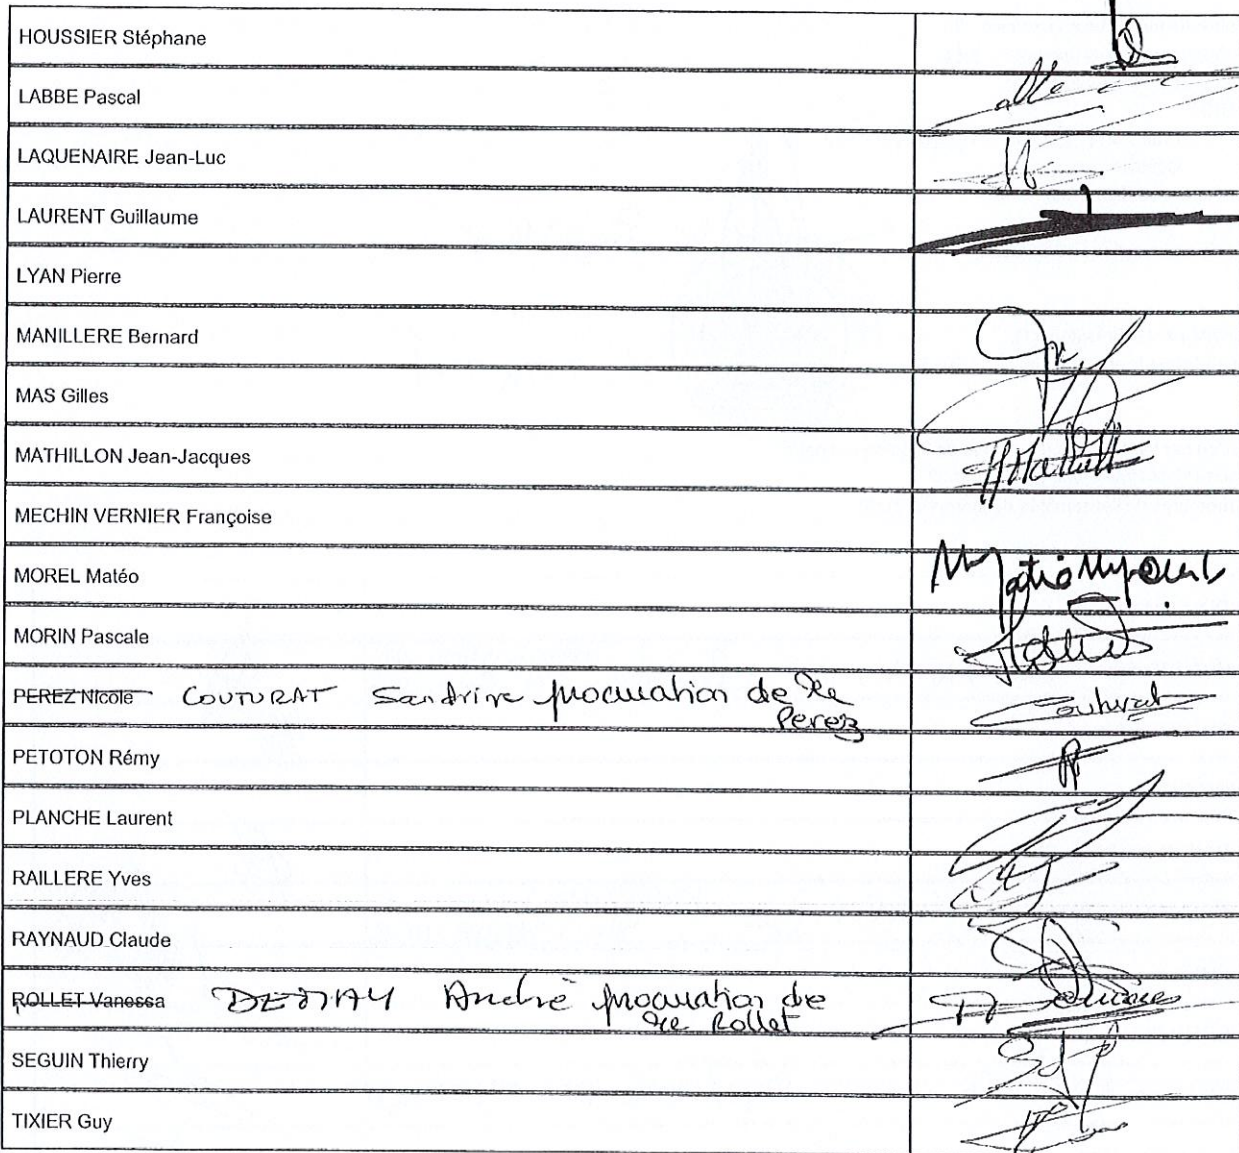 HOUSSIER Stéphane
LABBE Pascal
LAQUENAIRE Jean-Luc
LAURENT Guillaume
LYAN Pierre
MANILLERE Bernard
MAS Gilles
MATHILLON Jean-Jacques
MECHIN VERNIER Françoise
MOREL Matéo
MORIN Pascale
PEREZ Nicole COUTURAT Sandrine procuration de
Perez
Couturat
PETOTON Rémy
PLANCHE Laurent
RAILLERE Yves
RAYNAUD Claude
ROLLET Vanessa André procuration de
Rollet
SEGUIN Thierry
TIXIER Guy